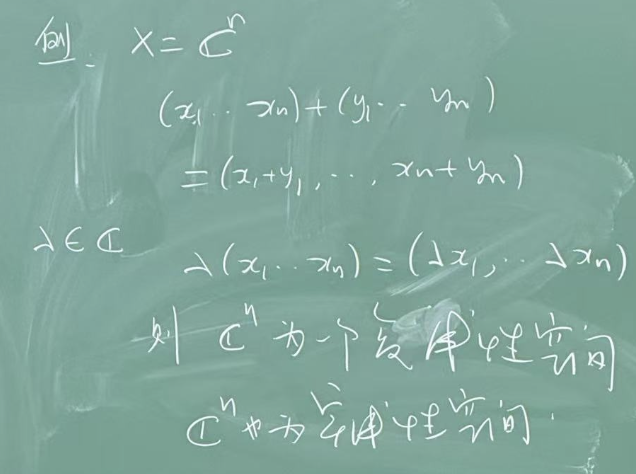 例: X = ℂⁿ
(x₁ ⋯ xₙ) + (y₁ ⋯ yₙ)
= (x₁+y₁, ⋯, xₙ+yₙ)
λ∈ℂ λ(x₁ ⋯ xₙ) = (λx₁, ⋯ λxₙ)
则 ℂⁿ 为一个复线性空间
ℂⁿ 也为实线性空间.